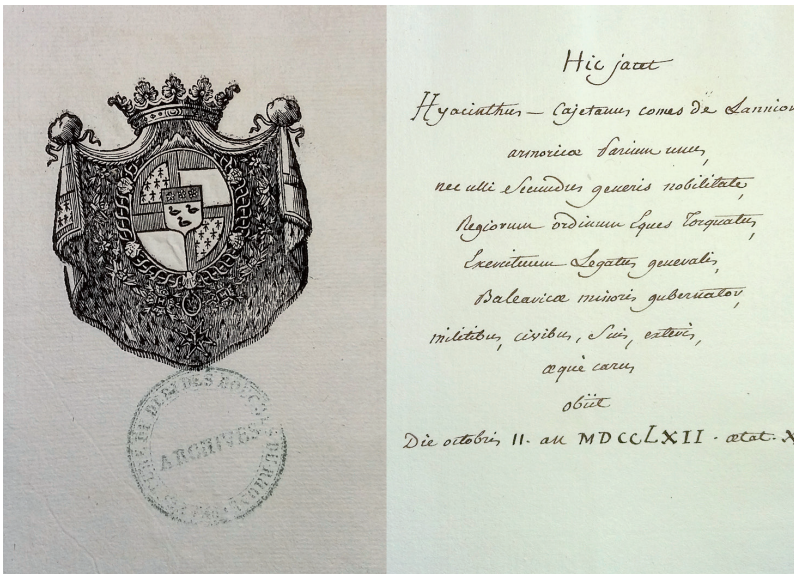 ARCHIVES
Hic jacet
Hyacinthus - Cajetanus comes de Lannion
armoricæ Parium unus,
nec ulli Secundus generis nobilitate,
Regiorum ordinum Eques Torquatus,
Exercituum Legatus generalis,
Balearicæ minoris gubernator,
militibus, civibus, Suis, exteris,
æquè carus
obiit
Die octobris II. an MDCCLXII. ætat. X